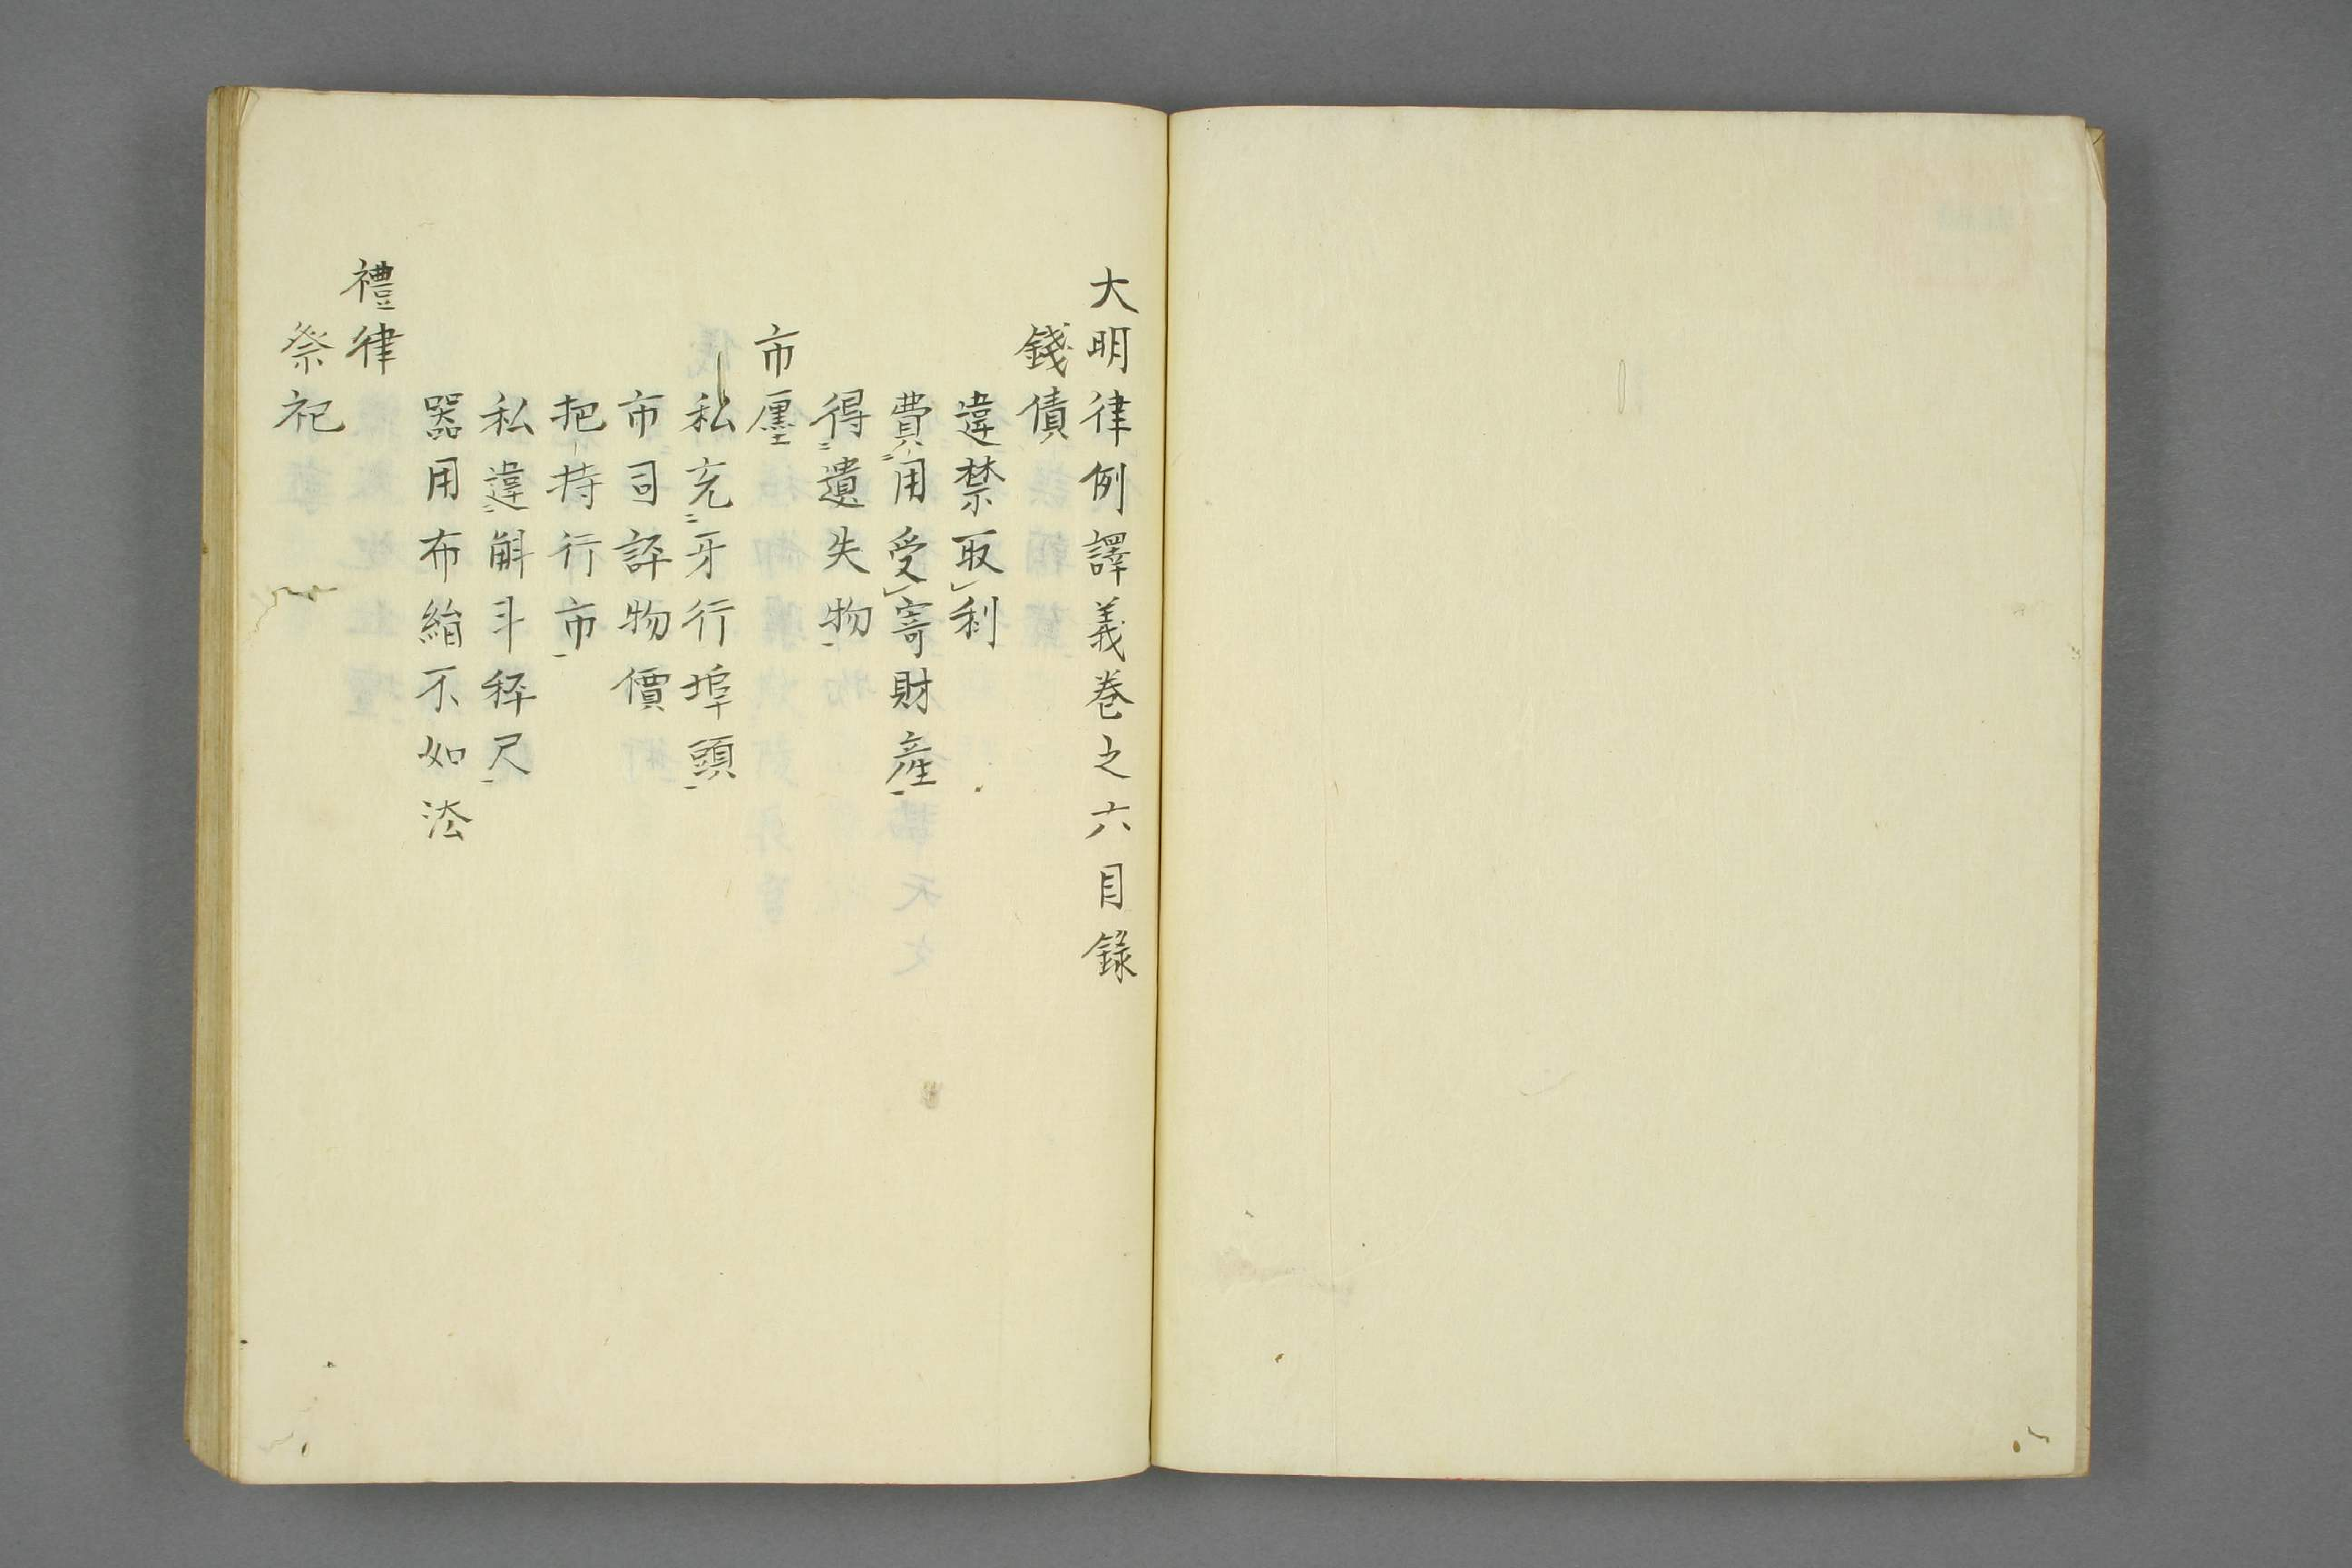 大明律例譯義卷之六目錄
錢債
違禁取利
費用受寄財產
得遺失物
市廛
私充牙行埠頭
市司評物價
把持行市
私違斛斗秤尺
器用布絹不如法
禮律
祭祀